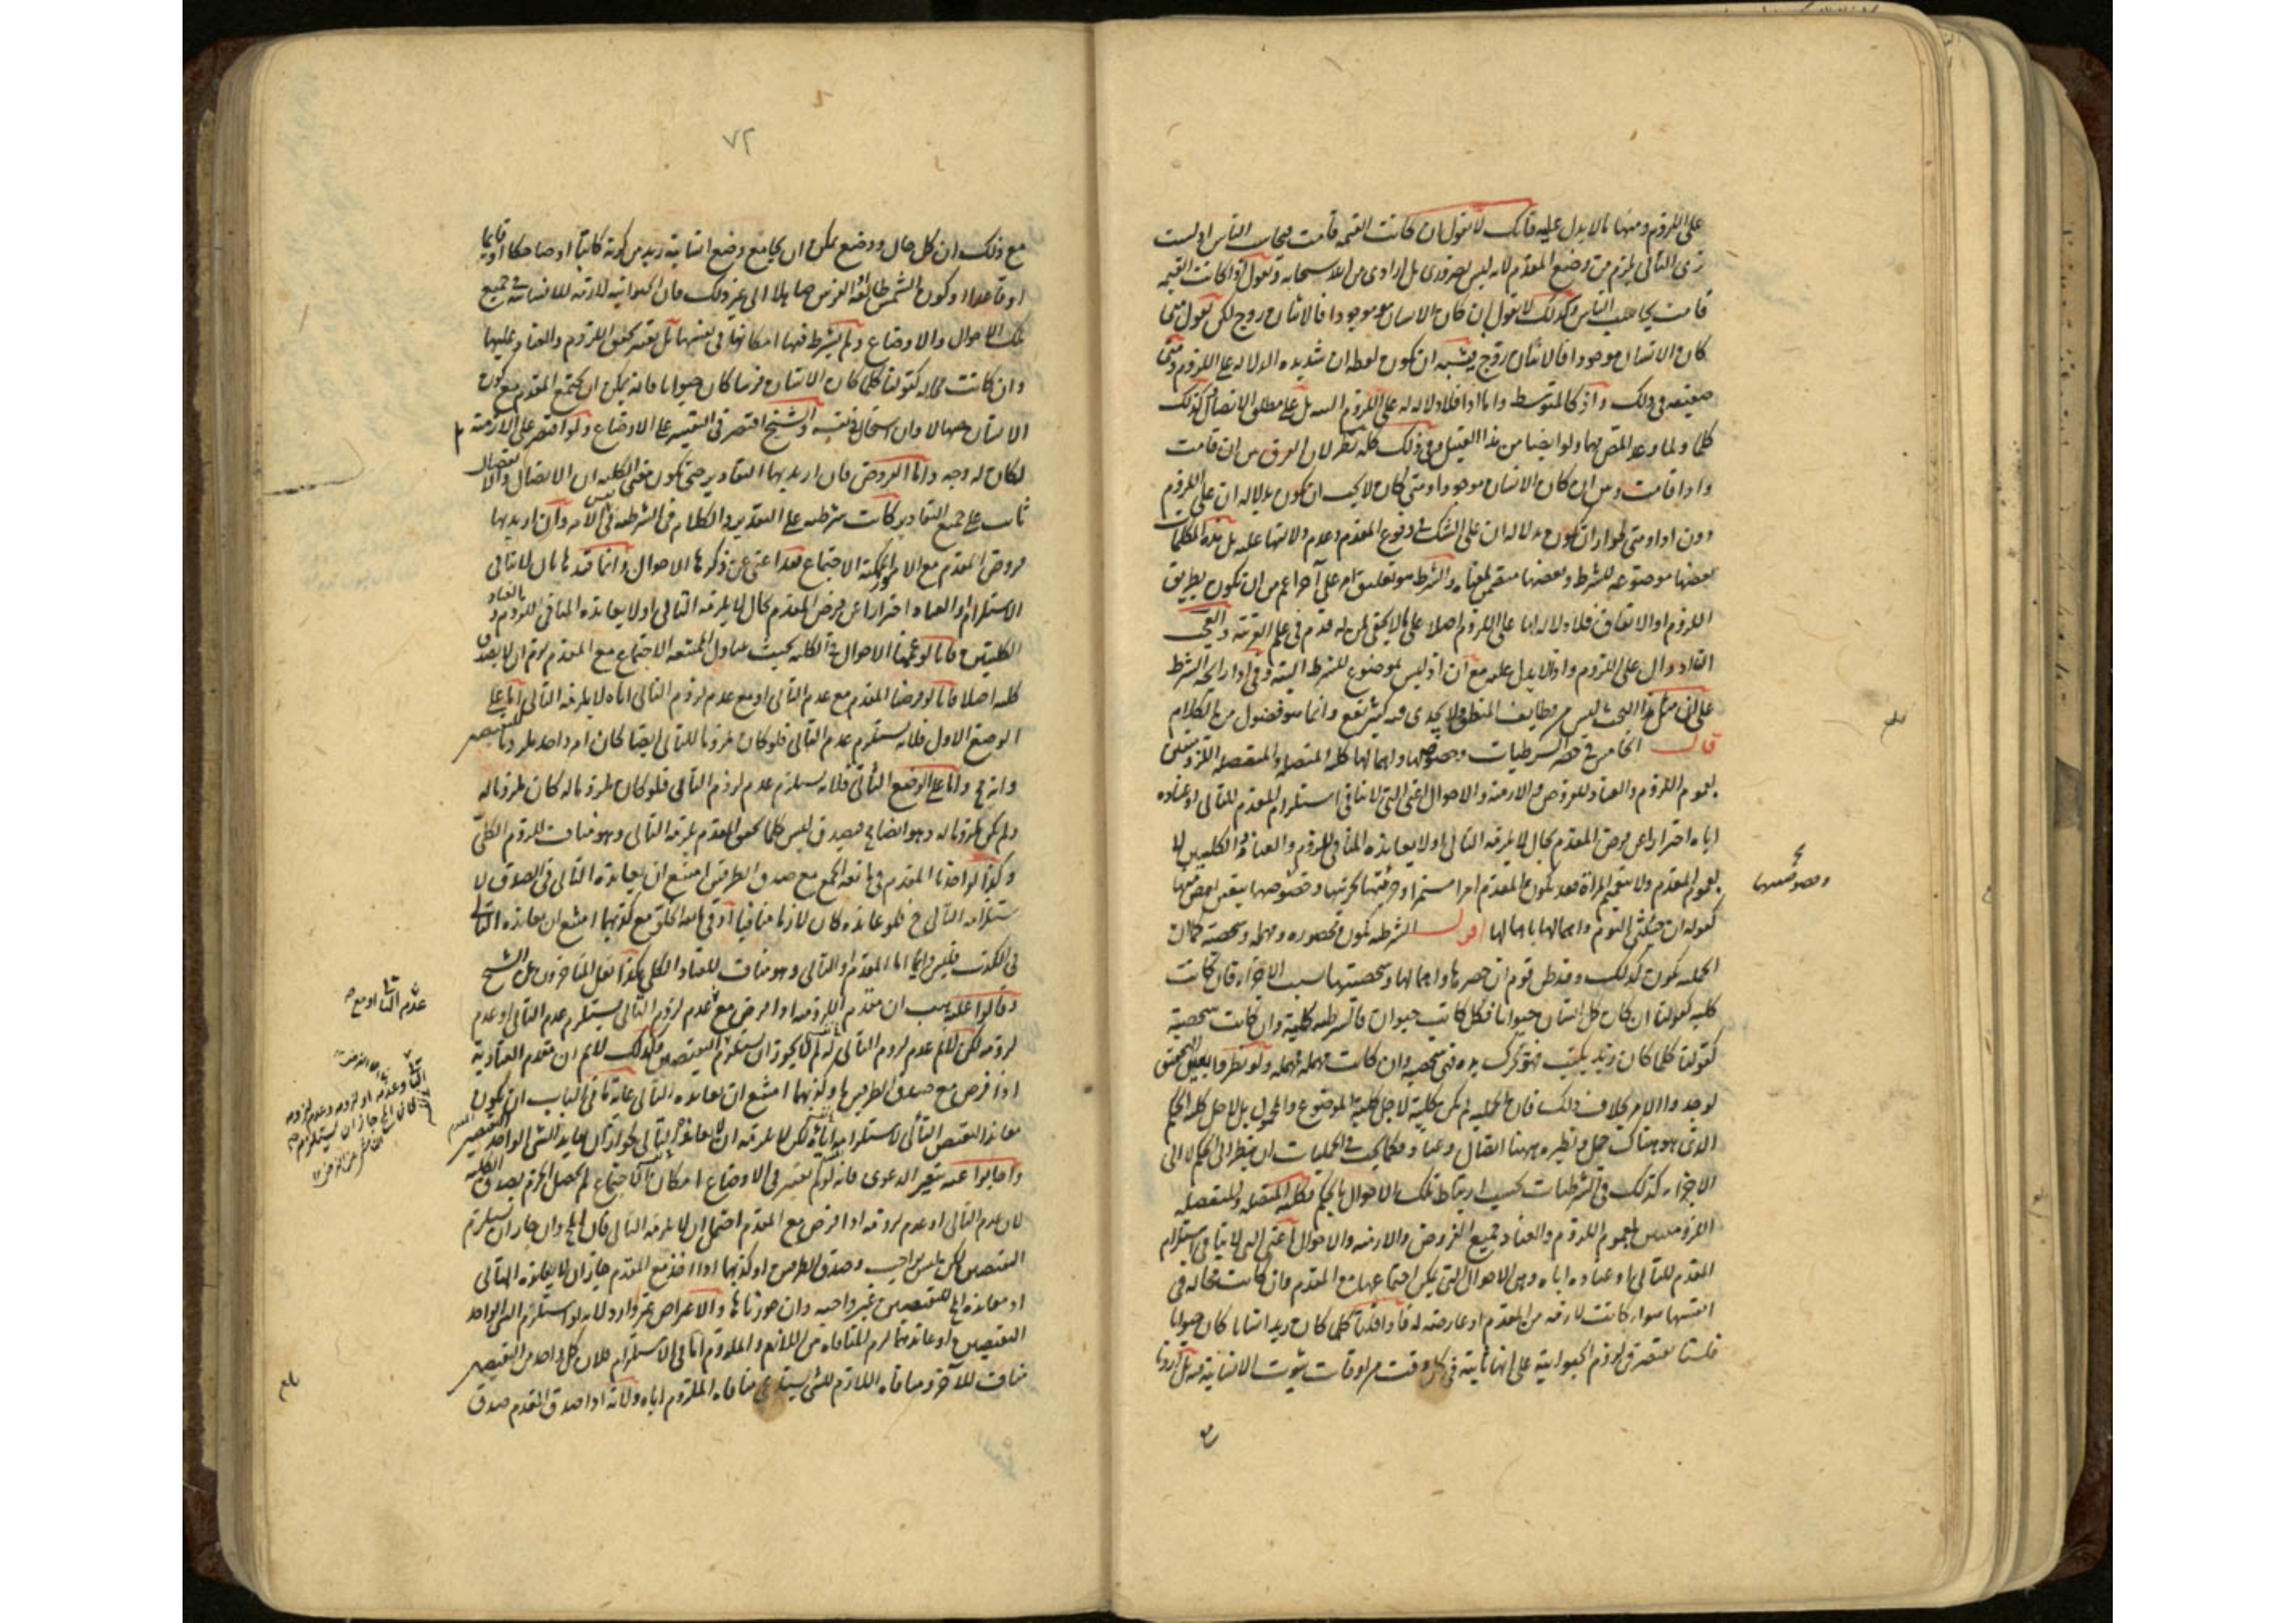 على اللزوم ومنها ما لا يدل عليه فانك لا تقول ان كانت القيمة قامت فيحاسب الناس اذ لست
ترى التالى يلزم من وضع المقدم لانه ليس بضرورى بل ارادى من الله سبحانه وتقول اذا كانت القيمة
قامت يحاسب الناس وكذلك لا تقول ان كان الانسان موجودا فالاثنان زوج لكن تقول متى
كان الانسان موجودا فالاثنان زوج فيشبه ان تكون لفظة ان شديدة الدلالة على اللزوم ومتى
ضعيفة فى ذلك واذ كالمتوسط واما اذا فلا دلالة له على اللزوم البتة بل على مطلق الاتصال وكذلك
كلما ولما وعد المتصل بها ولو ايضا من هذا القبيل وفى ذلك كله نظر لان الفرق بين ان قامت
واذا قامت وبين ان كان الانسان موجودا ومتى كان لا يجب ان تكون بدلالة ان على اللزوم
دون اذا ومتى لجواز ان تكون بدلالة ان على الشك فى وقوع المقدم وعدم دلالتها عليه بل هذه الكلمات
بعضها موضوعة للشرط وبعضها متضمن لمعناه والشرط هو تعليق امر على آخر اعم من ان تكون بطريق
اللزوم او الاتفاق فلا دلالة لها على اللزوم اصلا على ما لا يخفى لمن له قدم فى علم العربية والعجب
ان اذ دال على اللزوم واذا لا يدل عليه مع ان اذ ليس بموضوع للشرط البتة وفى اذا رايحة الشرط
على ان مثل هذا البحث ليس من وظايف المنطق ولا يجدى فيه كثير نفع وانما هو فضول من الكلام
قال الخامس فى حصر الشرطيات وخصوصها واهمالها كلية المتصلة والمنفصلة اللزوميتين
بعموم اللزوم والعناد للفروض والازمنة والاحوال اعنى التى لا تنافى استلزام المقدم للتالى او عناده
اياه احترازا عن فرض المقدم بحال لا يلزمه التالى او لا يعانده المنافى للزوم والعناد الكليين لا
بعموم المقدم ولا بتعميم المرات فقد يكون المقدم امرا مستمرا وجزئيتها بجزئيتها وخصوصها بتعين بعض منها
كقوله ان جئتنى اليوم واهمالها باهمالها اقول الشرطية تكون محصورة ومهملة وشخصية كما ان
الحملية تكون كذلك وقد ظن قوم ان حصرها واهمالها وشخصيتها بسبب الاجزاء فان كانت
كلية كقولنا ان كان كل انسان حيوانا فكل كاتب حيوان فالشرطية كلية وان كانت شخصية
كقولنا كلما كان زيد يكتب فهو تحرك يده فهى شخصية وان كانت مهملة فمهملة ولو نظروا بعين التحقيق
لوجدوا الامر بخلاف ذلك فان الحملية لم تكن كلية لاجل كلية الموضوع والمحمول بل لاجل كلية الحكم
الذى هو هناك حمل ونظيره ههنا اتصال وعناد فكما يجب فى الحمليات ان ينظر الى الحكم لا الى
الاجزاء كذلك فى الشرطيات يجب ارتباط تلك الاحوال بالحكم فكلية المتصلة والمنفصلة
اللزوميتين بعموم اللزوم والعناد جميع الفروض والازمنة والاحوال اعنى التى لا تنافى استلزام
المقدم للتالى او عناده اياه وهى الاحوال التى يمكن اجتماعها مع المقدم وان كانت محالة فى
انفسها سواء كانت لازمة من المقدم او عارضة له فاذا قلنا كلما كان زيد انسانا كان حيوانا
فلسنا نقتصر فى لزوم الحيوانية على انها ثابتة فى كل وقت من اوقات ثبوت الانسانية فيه بل اردنا
وخصوصيتها
بلغ
٧٢
مع ذلك ان كل حال ووضع يمكن ان يجامع وضع انسانية زيد من كونه كاتبا او ضاحكا او قايما
او قاعدا وكون الشمس طالعة الفرس صاهلا الى غير ذلك فان الحيوانية لازمة للانسانية فى جميع
تلك الاحوال والاوضاع ولم يشترط فيها امكانها فى نفسها بل يعتبر تحقق اللزوم والعناد عليها
وان كانت محالة كقولنا كلما كان الانسان فرسا كان حيوانا فانه يمكن ان يجتمع المقدم مع كون
الانسان صهالا وان استحال فى نفسه والشيخ اقتصر فى التفسير على الاوضاع ولو اقتصر على الازمنة
لكان له وجه واما الفروض فان اريد بها التقادير حتى تكون معنى الكلية ان الاتصال والانفصال
ثابت على جميع التقادير كانت شرطية على التقدير والكلام فى الشرطية فى نفس الامر وان اريد بها
فروض المقدم مع الامور الممكنة الاجتماع فقد اغنى عن ذكرها الاحوال وانما قيدها بان لا تنافى
الاستلزام او العناد احترازا عن فرض المقدم بحال لا يلزمه التالى او لا يعانده المنافى للزوم والعناد
الكليتين فانا لو عممنا الاحوال فى الكلية بحيث يتناول الممتنعة الاجتماع مع المقدم لزم ان لا يصدق
كلية اصلا فانا لو فرضنا المقدم مع عدم التالى او مع عدم لزوم التالى اياه لا يلزمه التالى اما على
الوضع الاول فلانه يستلزم عدم التالى فلو كان ملزوما للتالى ايضا كان امر واحد ملزوما للنقيضين
وانه مح واما على الوضع الثانى فلانه يستلزم عدم لزوم التالى فلو كان ملزوما له كان ملزوما له
ولم يكن ملزوما له وهو ايضا مح فيصدق ليس كلما تحقق المقدم يلزمه التالى وهو مناف للزوم الكلى
وكذا لو اخذنا المقدم فى مانعة الجمع مع صدق الطرفين امتنع ان يعانده التالى فى الصدق لا
ستلزامه التالى ح فلو عانده كان لازما منافيا او فى مانعة الخلو مع كذبهما امتنع ان يعانده التالى
فى الكذب فليس دايما اما المقدم او التالى وهو مناف للعناد الكلى هكذا نقل المتاخرون عن الشيخ
وقالوا عليه يجب ان مقدم اللزومية اذا فرض مع عدم لزوم التالى يستلزم عدم التالى او عدم
لزومه لكن لا نم عدم لزوم التالى له لم لا يجوز ان يستلزم النقيضين وكذلك لا نم ان مقدم العنادية
اذا فرض مع صدق الطرفين او كذبهما امتنع ان يعانده التالى غاية ما فى الباب ان تكون
معاندا لنقيض التالى لاستلزامه اياه لكن لا يلزم منه ان لا يعانده التالى لجواز ان يعاند الشى الواحد النقيضين
واجابوا عنه بتغيير الدعوى فانه لو لم يعتبر فى الاوضاع امكان الاجتماع لم يحصل الجزم بصدق الكلية
لان عدم التالى او عدم لزومه اذا فرض مع المقدم احتمل ان لا يلزمه التالى فان المح وان جاز ان يستلزم
النقيضين لكن ليس بواجب وصدق الطرفين او كذبهما اذا اخذ مع المقدم جاز ان لا يعانده التالى
او معاندة المح للنقيضين غير واجبة وان جوزناها والاعتراض غير وارد لانه لو استلزم الشى الواحد
النقيضين او عاندهما لزم المنافاة بين اللازم والملزوم اما فى الاستلزام فلان كل واحد من النقيضين
مناف للآخر ومنافاة اللازم للشى يستدعى منافاة الملزوم اياه ولانه اذا صدق المقدم صدق
عدم التالى او مع
بلغ